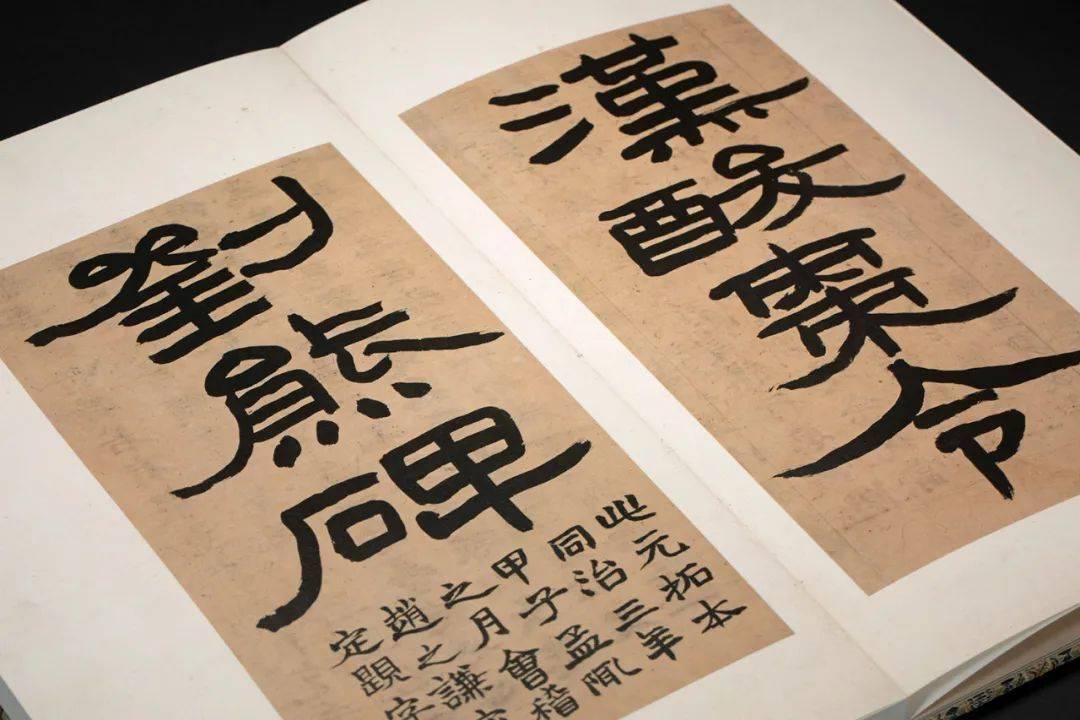 漢酸棗令
劉熊碑
此元拓本
同治三年
甲子孟陬
之月會稽
趙之謙
定題字